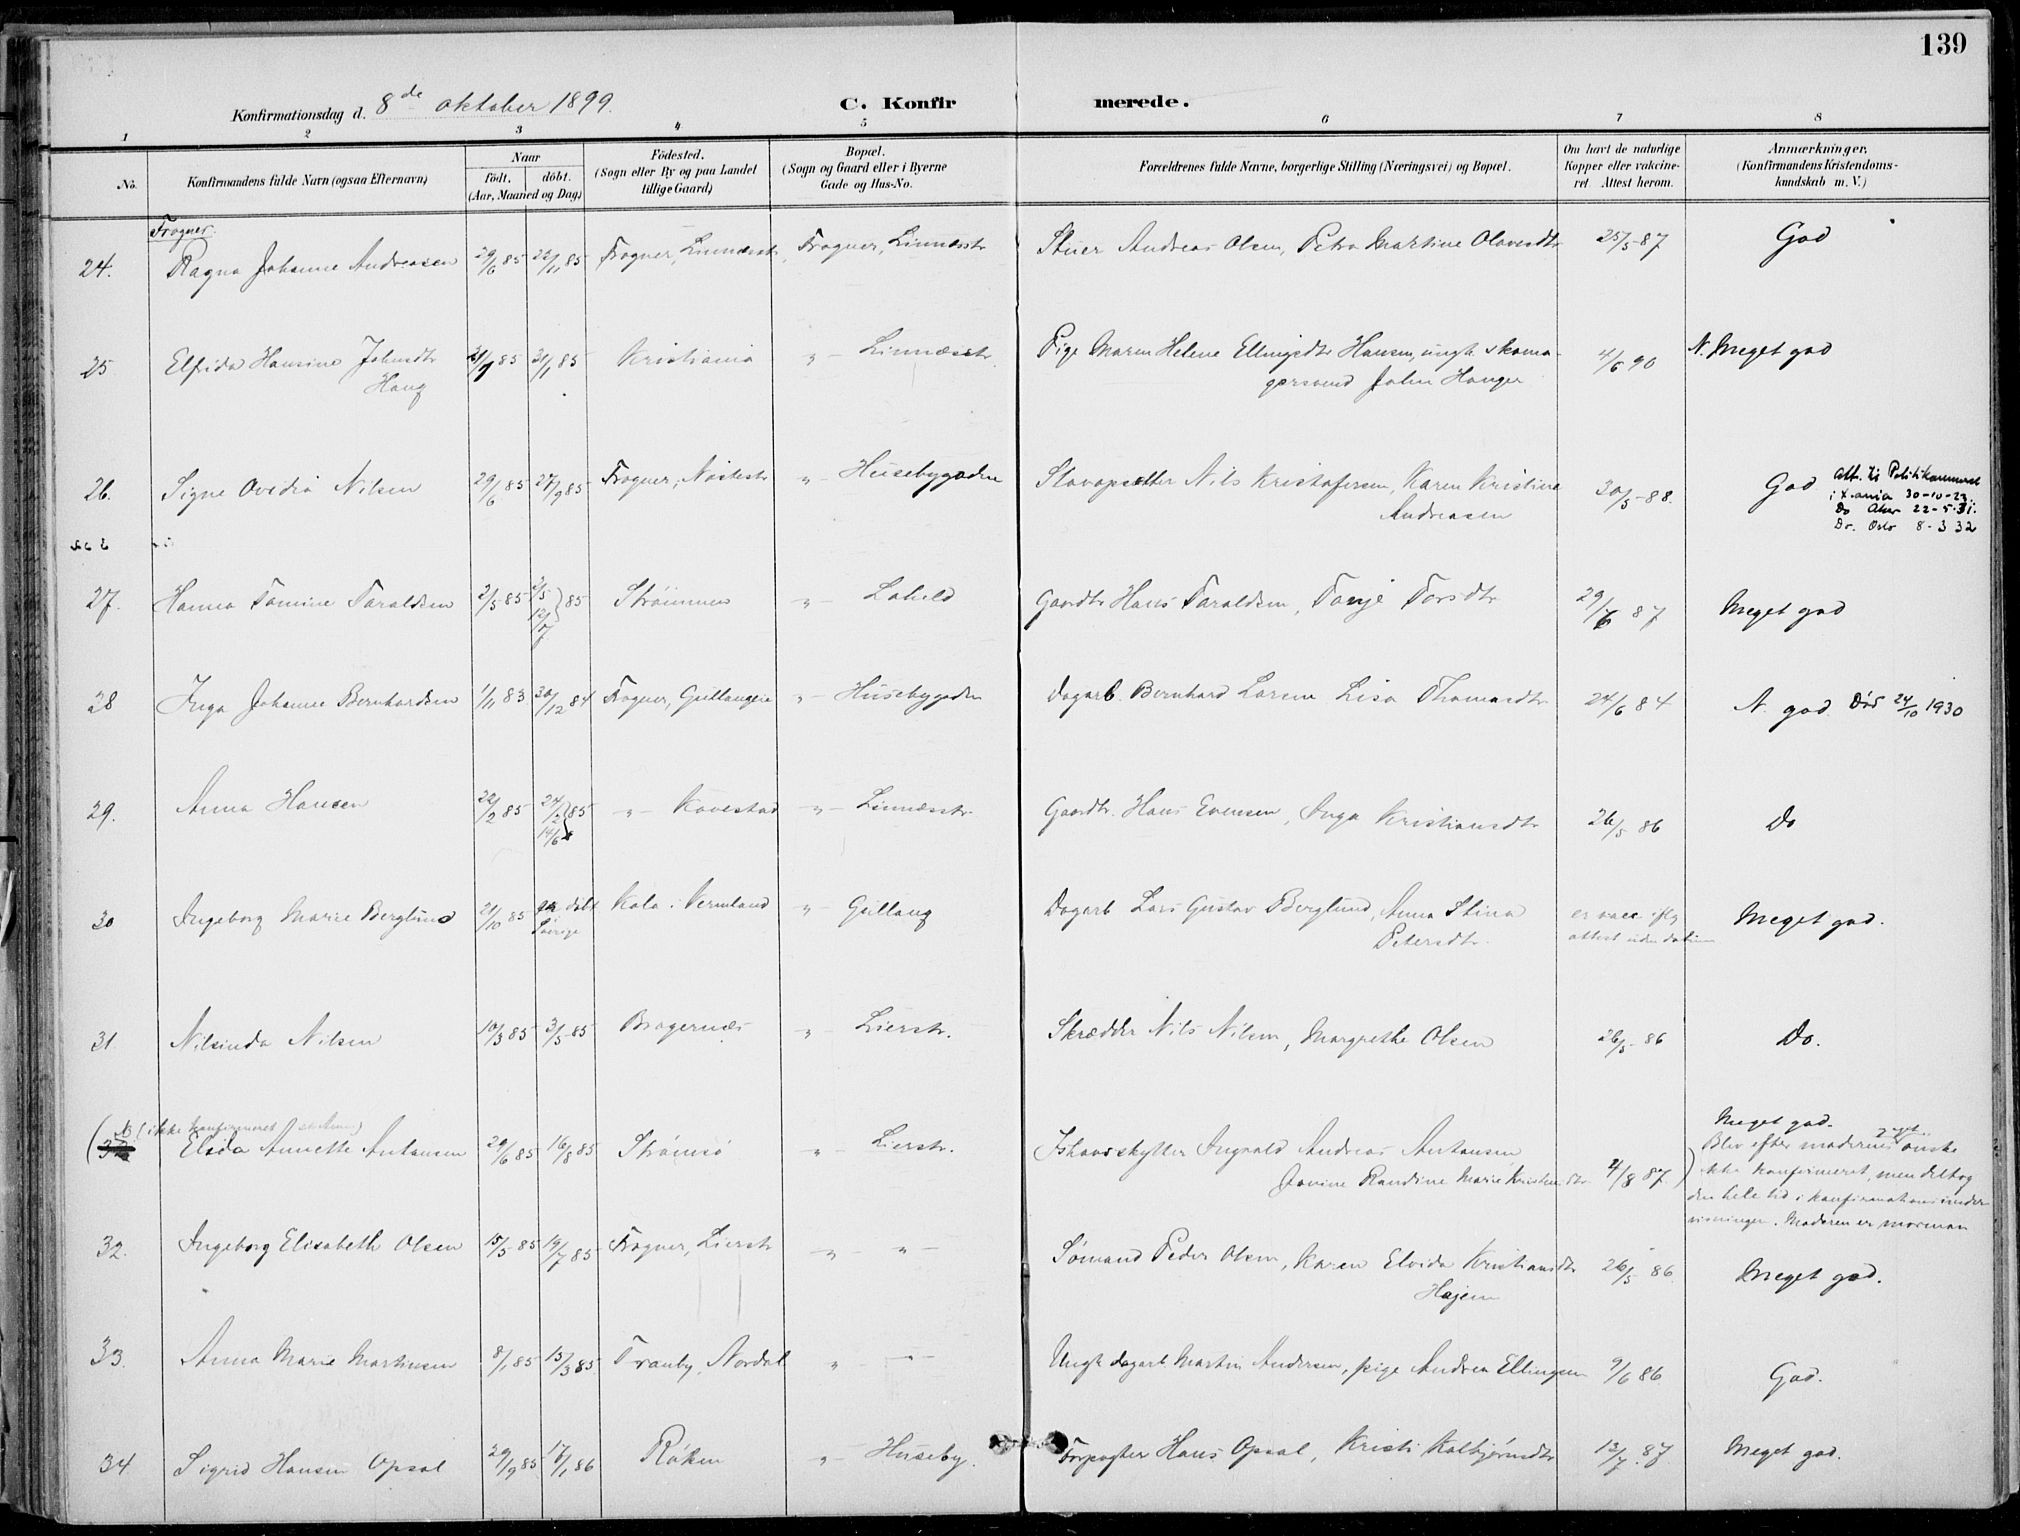 139
Konfirmationsdag d. 8de oktober 1899.
C. Konfirmerede.
1 2 3 4 5 6 7 8
No.
Konfirmandens fulde Navn (ogsaa Efternavn)
Naar
födt. döbt.
(Aar, Maaned og Dag)
Födested.
(Sogn eller By og paa Landet
tillige Gaard)
Bopæl.
(Sogn og Gaard eller i Byerne
Gade og Hus-No.
Forældrenes fulde Navne, borgerlige Stilling (Næringsvei) og Bopæl.
Om havt de naturlige
Kopper eller vakcine-
ret. Attest herom.
Anmærkninger,
(Konfirmandens Kristendoms-
kundskab m. V.)
Frogner.
24. Ragna Johanne Andreasen 29/6 85 22/11 85 Frogner, Linnesstr. Frogner, Linnesstr Stuer Andreas Olsen, Petra Martine Olavesdtr 25/5-87 God
25 Elfrida Hansine Johnsdtr 85 85 Kristiania „ - Linnæsstr. Pige Maren Helene Ellingsdtr Hansen, ungk. skoma-
Haug
gersvend John Hauger 4/6 90 N. Meget god
26. Signe Ovidia Nilsen 29/6 85 27/9 85 Frogner, Nøstestr „ - Husebygaden Nils Kristofersen, Karen Kristine
Andreasen 30/5-88. God
Att. til Politikammeret
i X.ania 30-10-23.
Do Aker 22-5-31.
Do. Oslo 8-3 32
27. Hanna Tomine Taraldsen 2/5 85 2/5 12/7 } 85 Strömmen „ - Lahell Gaardbr Hans Taraldsen, Tonje Torsdtr 29/6 87 Meget god
28 Inga Johanne Bernhardsen 1/11 83 30/12 84 Frogner, Gullaugen „ - Husebygaden Dagarb. Bernhard Larsen Lisa Thomasdtr 24/6 84 N. god. Död 24/10 1930
29. Anna Hansen 22/2 85 24/2 14/6 } 85 „ - Kovestad „ - Linnæsstr. Gaardbr. Hans Evensen, Inga Kristiansdtr 26/5 86 Do
30 Ingeborg Marie Berglund 21/10 85 døbt
Sverige Kola i Vermland „ - Gullaug Dagarb Lars Gustav Berglund, Anna Stina
Petersdtr. er vacc iflg
attest uden datum Meget god.
31. Nilsinda Nilsen 10/3 85 3/5-85 Bragernæs „ - Lierstr. Skrædder Nils Nilsen, Margrethe Olsen 26/5-86 Do.
(ikke konfirmeret
32 Elida Annette Antonsen 29/6 85 16/8 85 Strömsö „ Lierstr. Ishavsskytter Ingvald Andreas Antonsen
Jovine Randine Marie Kristiansdtr. 4/8 87.
Meget god.
Blev efter moderens eget ønske
ikke konfirmeret, men deltog
den hele tid i konfirmationsunder
visningen. Moderen er mormon
32. Ingeborg Elisabeth Olsen 15/5-85 19/7 85 Frogner, Lierstr „ - „ - Sömand Peder Olsen, Karen Elvida Kristiansdtr
Hajem 26/5 86. Meget god.
33. Anna Marie Martinsen 8/1 85 15/3 85 Tranby, Nordal „ - „ - Ungk dagarb Martin Andersen, pige Andrea Ellingsen 9/6 86. God.
34 Sigrid Hansen Opsal 29/9 85 17/1 86 Röken „ - Huseby. Forpagter Hans Opsal, Kristi Kolbjörnsdtr 12/7 87. Meget god.